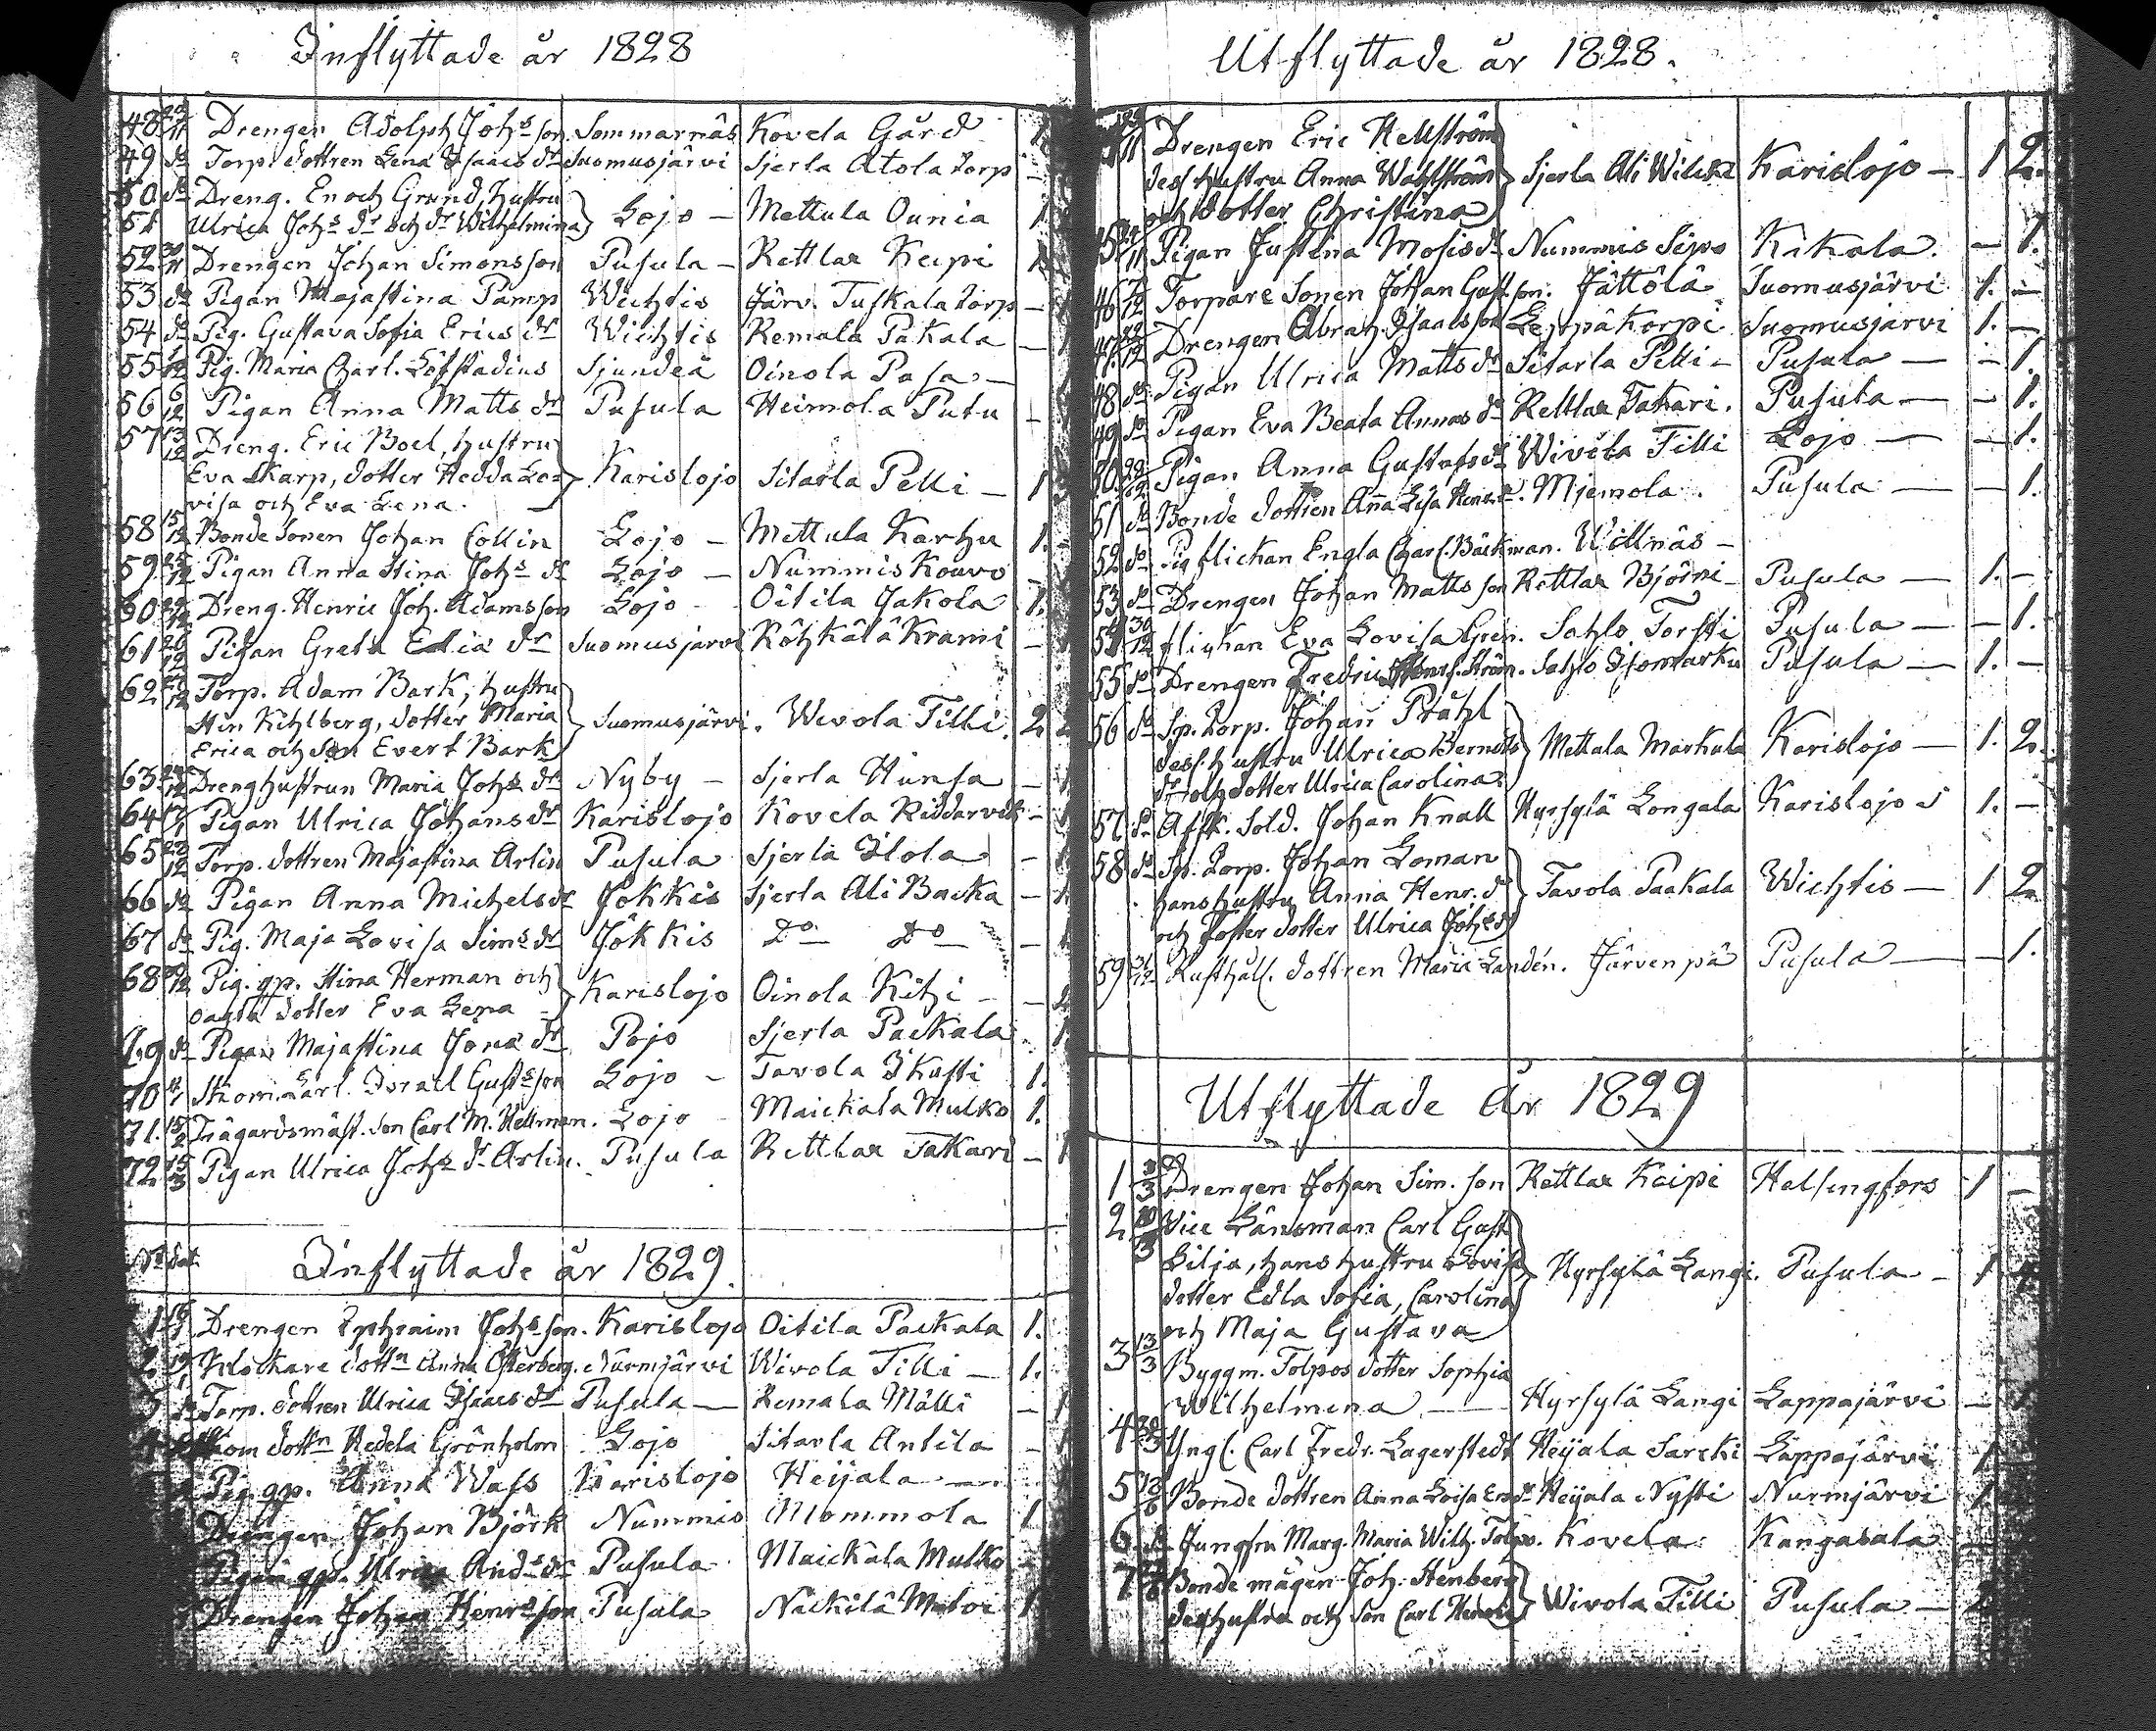 Inflyttade år 1828
48 29/11 Drengen Adolph Johs son Sommarnäs Kovela Gård 1
49 do Torp. dottren Lena Isaacs dr Suomusjärvi Sjerla Atola torp - 1
50 do Dreng. Enoch Grund, hustru
51 Ulrica Johs dr och dr Wilhelmina } Lojo - Mettula Ounia 1
52 30/11 Drengen Johan Simonsson Pusula - Rettlax Keipi 1
53 do Pigan Majastina Pamp Wichtis Järv. Tuskala torp - 1
54 do Pig. Gustava Sofia Erics dr Wichtis Remala Pakala - 1
55 /12 Pig. Maria Charl. Löfstadius Sjundeå Oinola Pasa -
56 6/12 Pigan Anna Matts dr Pusula Heimola Putu -
57 13/12 Dreng. Eric Boel, hustru
Eva Skarp, dotter Hedda Lo- } Karislojo Sitarla Pelli - 1
visa och Eva Lena.
58 15/12 Bonde sonen Johan Collin Lojo - Mettula Karhu 1. -
59 25/12 Pigan Anna Stina Johs dr Lojo - Nummis Kouvo -
60 /12 Dreng. Henric Joh. Adamsson Lojo - Oitila Jakola 1.
61 26/12 Pigan Greta Elia dr Suomusjärvi Röhkälä Krami - 1
62 27/12 Torp. Adam Bark, hustru
Stin Kihlberg, dotter Maria } Suomusjärvi. Wivola Tilli. 2 2
Erica och son Evert Bark
63 /12 Drenghustrun Maria Johs dr Nyby - Sjerla Hunsa - 1
64 /1 Pigan Ulrica Johans dr Karislojo Kovela Riddarvik - 1
65 28/12 Torp. dottren Majastina Arlin Pusula Sjerla Ilola - 1
66 do Pigan Anna Michels dr Jokkis Sjerla Ali Backa - 1.
67 do Pig. Maja Lovisa Sims dr Jokkis Do Do - 1
68 /12 Pig. gp. Stina Herman och
oägta dotter Eva Lena } Karislojo Oinola Kihi - - 2
69 do Pigan Majastina Jona dr Pojo Sjerla Packala - 1
70 Skom. Lärl. Israel Gusts son Lojo - Tavola Ikusti 1.
71. 15/2 Trägårdsmäst. son Carl M. Hellman. Lojo - Maickala Mulko 1.
72 15/3 Pigan Ulrica Johs dr Arlin. Pusula Rettlax Takari - 1
No Dat. Inflyttade år 1829.
1 16/1 Drengen Ephraim Johs son. Karislojo Oitila Packala 1.
2 19/1 Klockare dottn Anna Österberg. Nurmjärvi Wivola Tilli - 1.
3 do Torp. dottren Ulrica Isaacs dr Pusula - Remala Mälli - 1
4 Skom dottn Hedda Grönholm Lojo Sitarla Antila - 1
Pig. gp. Anna Wass Karislojo Heijala -
Drengen Johan Björk Nummis Mommola 1
Pigan gp. Ulrica Ands dr Pusula Maickala Mulko -
Drengen Johan Henrs son Pusula Nackilä Matvi 1
Utflyttade år 1828.
/11 Drengen Eric Hellström
dess hustru Anna Wahlström } Sjerla Ali Wilcki Karislojo - 1 2.
och dotter Christina
45 24/11 Pigan Justina Mosis dr Nummis Sipo Kikala. - 1.
46 7/12 Torpare sonen Johan Gust. son. Jättölä Suomusjärvi 1. -
47. 22/12 Drengen Abrah. Isaacsson Leppäkorpi Suomusjärvi 1. -
48 do Pigan Ulrica Matts dr Sitarla Pelli - Pusula - - 1.
49 do Pigan Eva Beata Annas dr Rettlax Takari. Pusula - - 1.
50 28/12 Pigan Anna Gustafs dr Wivola Tilli Lojo - - 1.
51 do Bonde dottren Anna Lisa Henrs dr. Mjemola. Pusula - - 1.
52 do Pig flickan Engla Charl. Bäckman. Willnäs -
53 do Drengen Johan Mattsson Rettlax Björni - Pusula - 1. -
54 30/12 flickan Eva Lovisa Gren. Sahlo Torsti Pusula - - 1.
55 do Drengen Fredric Henrs. Ström. Sahlo Isomarku Pusula - 1. -
56 do Sp. torp. Johan Pråhl
dess hustru Ulrica Bernds } Mettala Markula Karislojo - 1. 2.
dr och dotter Ulrica Carolina.
57 do Afsk. Sold. Johan Knall Hyrsylä Longala Karislojo 1. -
58 do Sp. torp. Johan Loman
hans hustru Anna Henr. dr } Tavola Paakala Wichtis - 1 2
och foster dotter Ulrica Johs dr
59 31/12 Rusthåls. dottren Maria Landén. Järvenpä Pusula - - 1.
Utflyttade år 1829
1 3/3 Drengen Johan Sim. son Rettlax Keipi Helsingfors 1 -
2 10/3 Vice Länsman Carl Gust.
Lilja, hans hustru Lovisa } Hyrsylä Langi. Pusula - 1
dotter Edla Sofia, Carolina
och Maja Gustava
3 13/3 Byggm. Tolpos dotter Sophia
Wilhelmina - Hyrsylä Langi Lappajärvi - 1
4 20/3 Yngl. Carl Fredr. Lagerstedt Heijala Sarcki Lappajärvi 1
5 13/6 Bonde dottren Anna Loisa Ers dr Heijala Nysti Nurmjärvi 1
6. do Jungfru Marg. Maria Wilh. Tolpo. Kovela Kangasala
7 Bonde mågen Joh. Stenberg
dess hustru och son Carl Henric } Wivola Tilli Pusula - 2